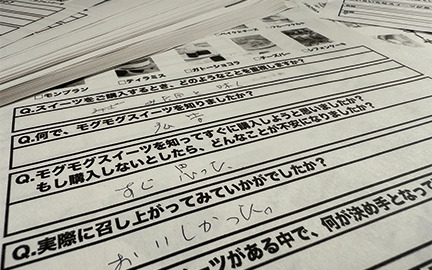 □モンブラン □ティラミス □ガトーショコラ
Q.スイーツをご購入するとき、どのようなことを重視しますか?
Q.何で、モグモグスイーツを知りましたか?
Q.モグモグスイーツを知ってすぐに購入しようと思いましたか?
もし購入しないとしたら、どんなことが不安になりましたか?
すぐ 思った。
Q.実際に召し上がってみていかがでしたか?
おいしかった。
スイーツがある中で、何が決め手となって